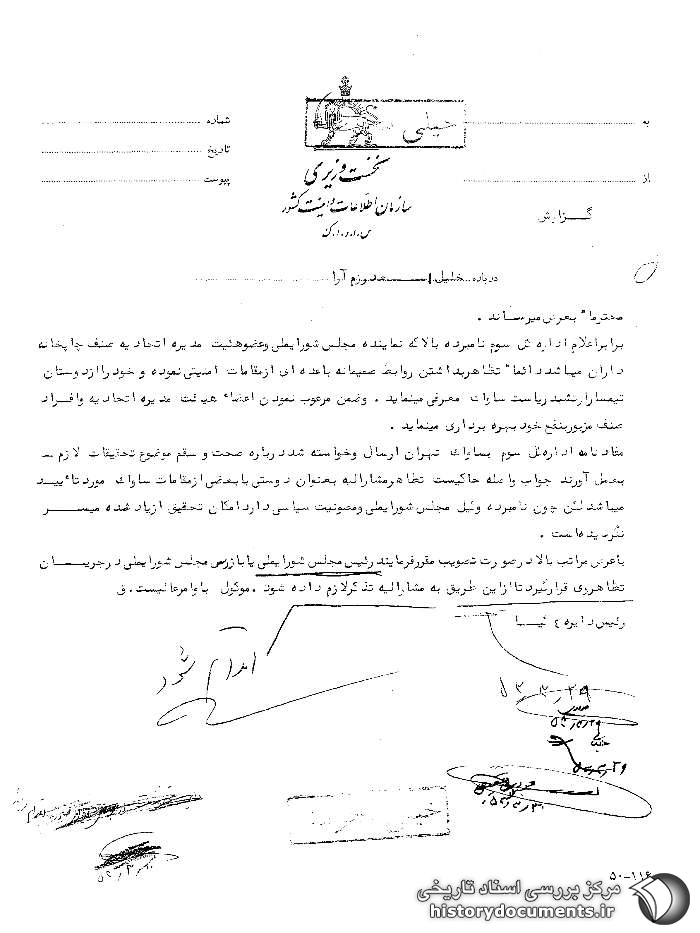 به
شماره
خیلی
تاریخ
از
پیوست
نخست وزیری
سازمان اطلاعات و امنیت کشور
س.ا.و.ا.ک
گزارش
درباره خلیل اسعد رزم آرا
محترما" بعرض میرساند .
برابر اعلام اداره کل سوم نامبرده بالا که نماینده مجلس شورایملی و عضو هئیت مدیره اتحادیه صنف چاپخانه
داران میباشد دائما" تظاهر بداشتن روابط صمیمانه با عده ای از مقامات امنیتی نموده و خود را از دوستان
تیمسار ارتشبد ریاست ساواک معرفی مینماید . وضمن مرعوب نمودن اعضاء هیات مدیره اتحادیه و افراد
صنف مزبور بنفع خود بهره برداری مینماید .
مفاد نامه اداره کل سوم بساواک تهران ارسال و خواسته شد درباره صحت و سقم موضوع تحقیقات لازم
بعمل آورند جواب واصله حاکیست تظاهر مشارالیه بعنوان دوستی با بعضی از مقامات ساواک مورد تائیید
میباشد لکن چون نامبرده وکیل مجلس شورایملی و مصونیت سیاسی دارد امکان تحقیق از یاد شده میسر
نگردیده است .
باعرض مراتب بالا در صورت تصویب مقرر فرمایند رئیس مجلس شورایملی یا بازرس مجلس شورایملی در جریان
تظاهر وی قرار گیرد تا از این طریق به مشارالیه تذکر لازم داده شود . موکول باوامر عالیست . ق
رئیس دایره
اقدام شود
۵۲.۲.۲۹
۵۲/۲/۳۰
۵۰-۱۱۶
مرکز بررسی اسناد تاریخی
historydocuments.ir